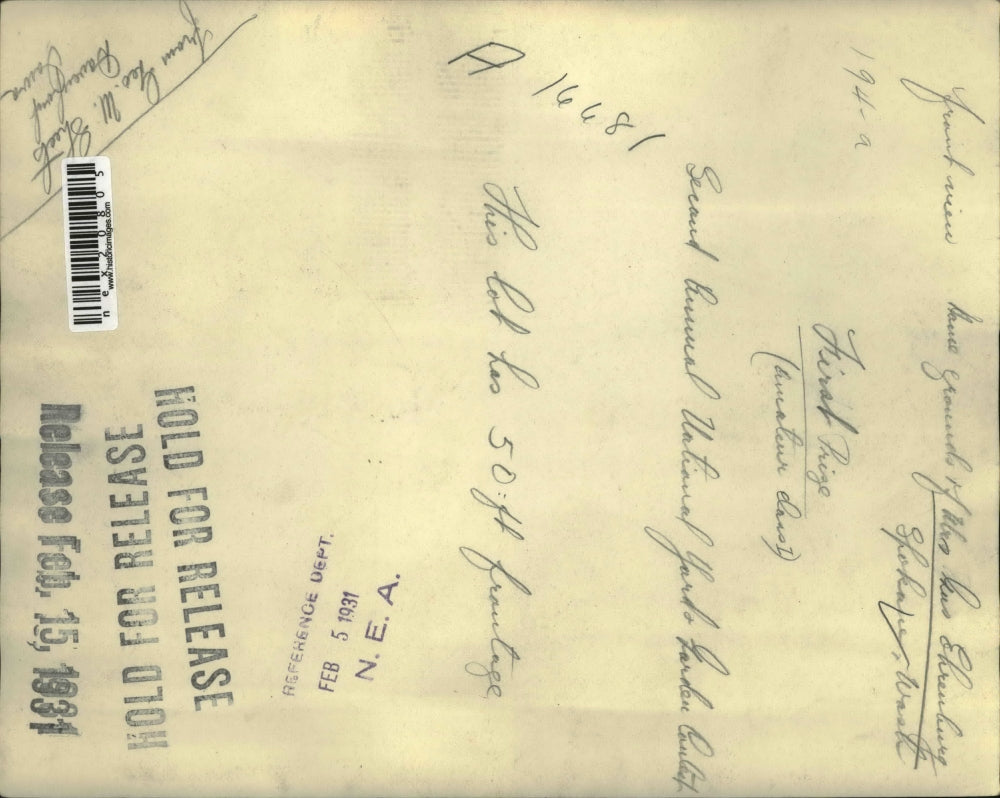 Front view Home grounds of Mrs Gus Ehrenburg
Spokane, Wash
194-a
First Prize
(amateur class)
Second Annual National Yards Garden Contest
A 16681
This lot has 50-ft frontage
REFERENCE DEPT.
FEB 5 1931
N. E. A.
HOLD FOR RELEASE
HOLD FOR RELEASE
Release Feb. 15, 1931
from Geo. W. Sheets
Davenport
Iowa
www.historicimages.com
nex20805